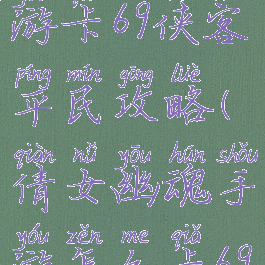 游卡69侠客
píng mín gōng lüè
平民攻略(
qiàn nǚ yōu hún shǒu
倩女幽魂手
yóu zěn me qiǎ
游怎么卡69